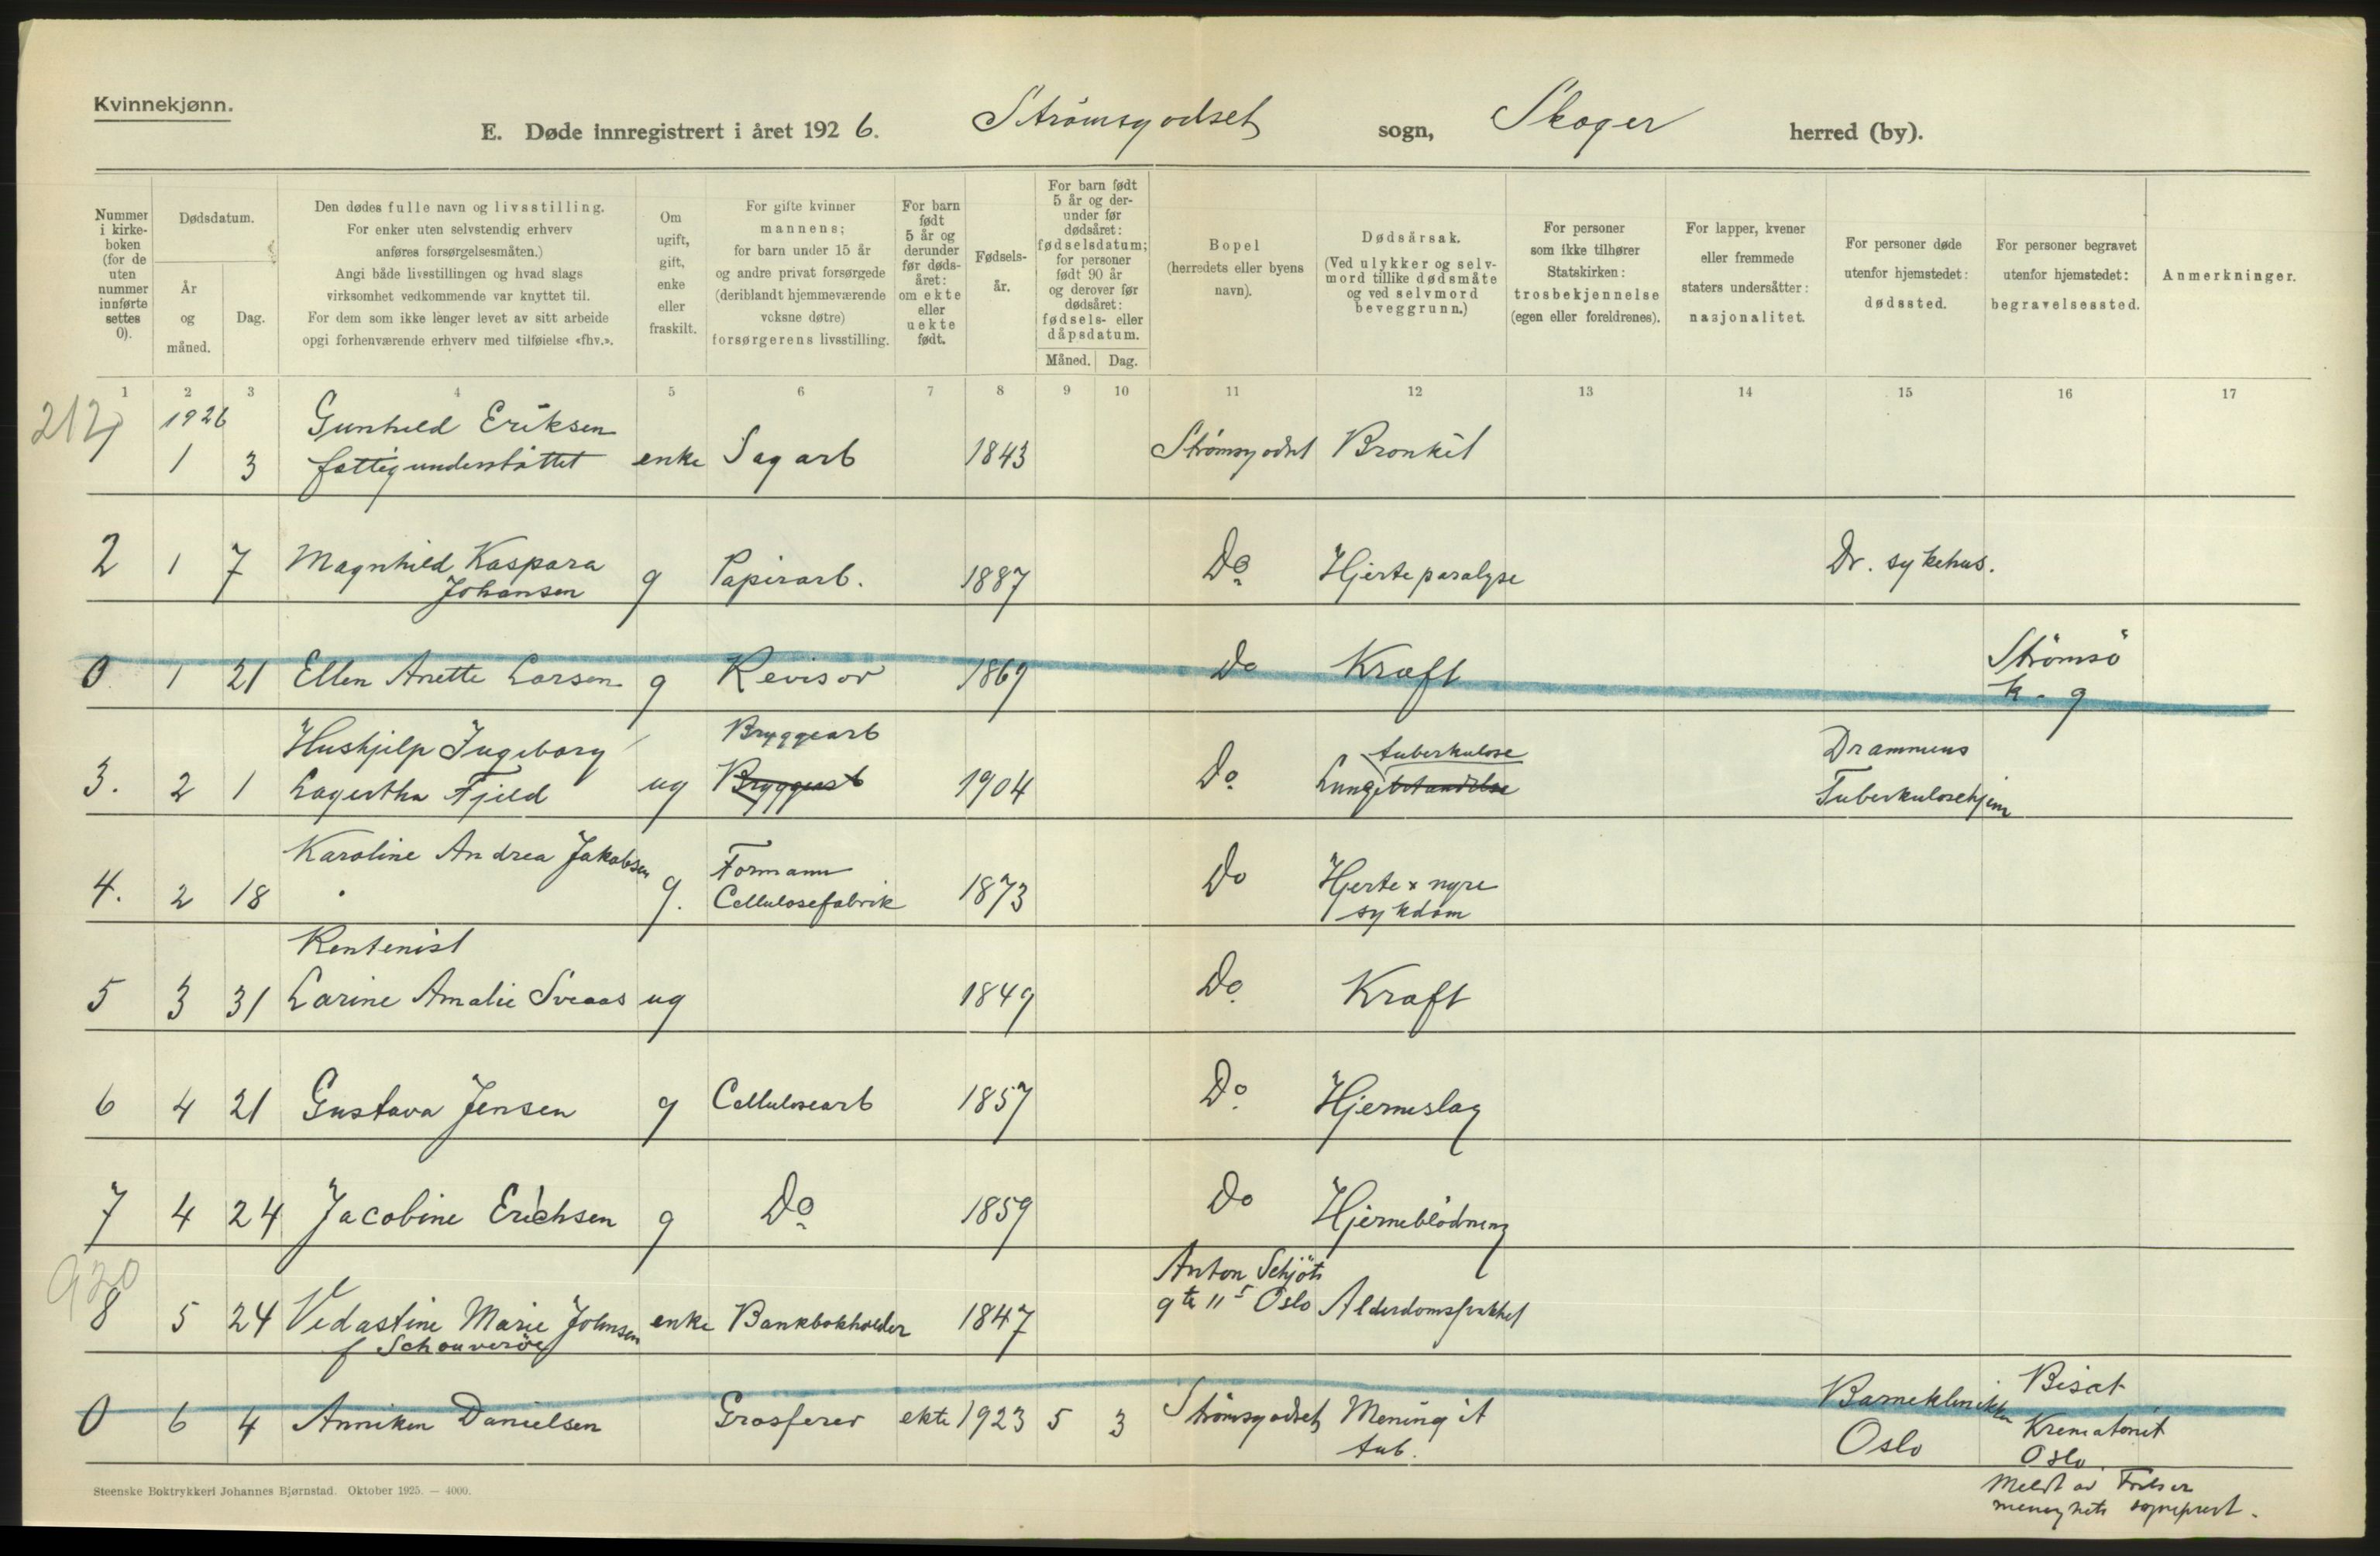 Kvinnekjønn.
E. Døde innregistrert i året 1926. Strømsgodset sogn, Skoger herred (by).
Nummer i kirkeboken (for de uten nummer innførte settes 0).
Dødsdatum.
År og måned.
Dag.
Den dødes fulle navn og livsstilling.
For enker uten selvstendig erhverv
anføres forsørgelsesmåten.)
Angi både livsstillingen og hvad slags
virksomhet vedkommende var knyttet til.
For dem som ikke lenger levet av sitt arbeide
opgi forhenværende erhverv med tilføielse «fhv.».
Om ugift, gift, enke eller fraskilt.
For gifte kvinner
mannens;
for barn under 15 år
og andre privat forsørgede
(deriblandt hjemmeværende
voksne døtre)
forsørgerens livsstilling.
For barn født 5 år og derunder før dødsåret: om ekte eller uekte født.
Fødselsår.
For barn født 5 år og derunder før dødsåret: fødselsdatum; for personer født 90 år og derover før dødsåret: fødsels- eller dåpsdatum.
Måned. Dag.
Bopel
(herredets eller byens
navn).
Dødsårsak.
(Ved ulykker og selvmord tillike dødsmåte og ved selvmord beveggrunn.)
For personer
som ikke tilhører
Statskirken:
trosbekjennelse
(egen eller foreldrenes).
For lapper, kvener
eller fremmede
staters undersåtter:
nasjonalitet.
For personer døde
utenfor hjemstedet:
dødssted.
For personer begravet
utenfor hjemstedet:
begravelsessted.
Anmerkninger.
1 2 3 4 5 6 7 8 9 10 11 12 13 14 15 16 17
212
1926 Gunhild Eriksen
1 1 3 fattigunderstøttet enke Sagarb 1843 Strømsgodset Bronkit
2 1 7 Magnhild Kaspara Johansen g Papirarb. 1887 Do Hjerteparalyse Dr. sykehus.
0 1 21 Ellen Anette Larsen g Revisor 1869 Do Kræft Strømsø
k.g
Hushjelp Ingeborg Bryggearb tuberkulose Drammens
3. 2 1 Lagertha Fjeld ug 1904 Do Lunge Tuberkulosehjem
Karoline Andrea Jakobsen Formann
4. 2 18 g. Cellulosefabrik 1873 Do Hjerte x nyre
sykdom
Rentenist
5 3 31 Larine Amalie Sveaas ug 1849 Do Kræft
6 4 21 Gustava Jensen g Cellulosearb 1857 Do Hjerneslag
7 4 24 Jacobine Erichsen g Do 1859 Do Hjerneblødning
920
Anton Schjøts
8 5 24 Vedastine Marie Johnsen enke Bankbokholder 1847 gte 11 5 Oslo Alderdomssvakhet
f
0 6 4 Anniken Danielsen Grosserer ekte 1923 5 3 Strømsgodset Meningit
tub. Barneklinikken
Oslo Bisat
Krematoriet
Oslo
Steenske Boktrykkeri Johannes Bjørnstad. Oktober 1925. — 4000.
Meldt av
menighets sogneprest.